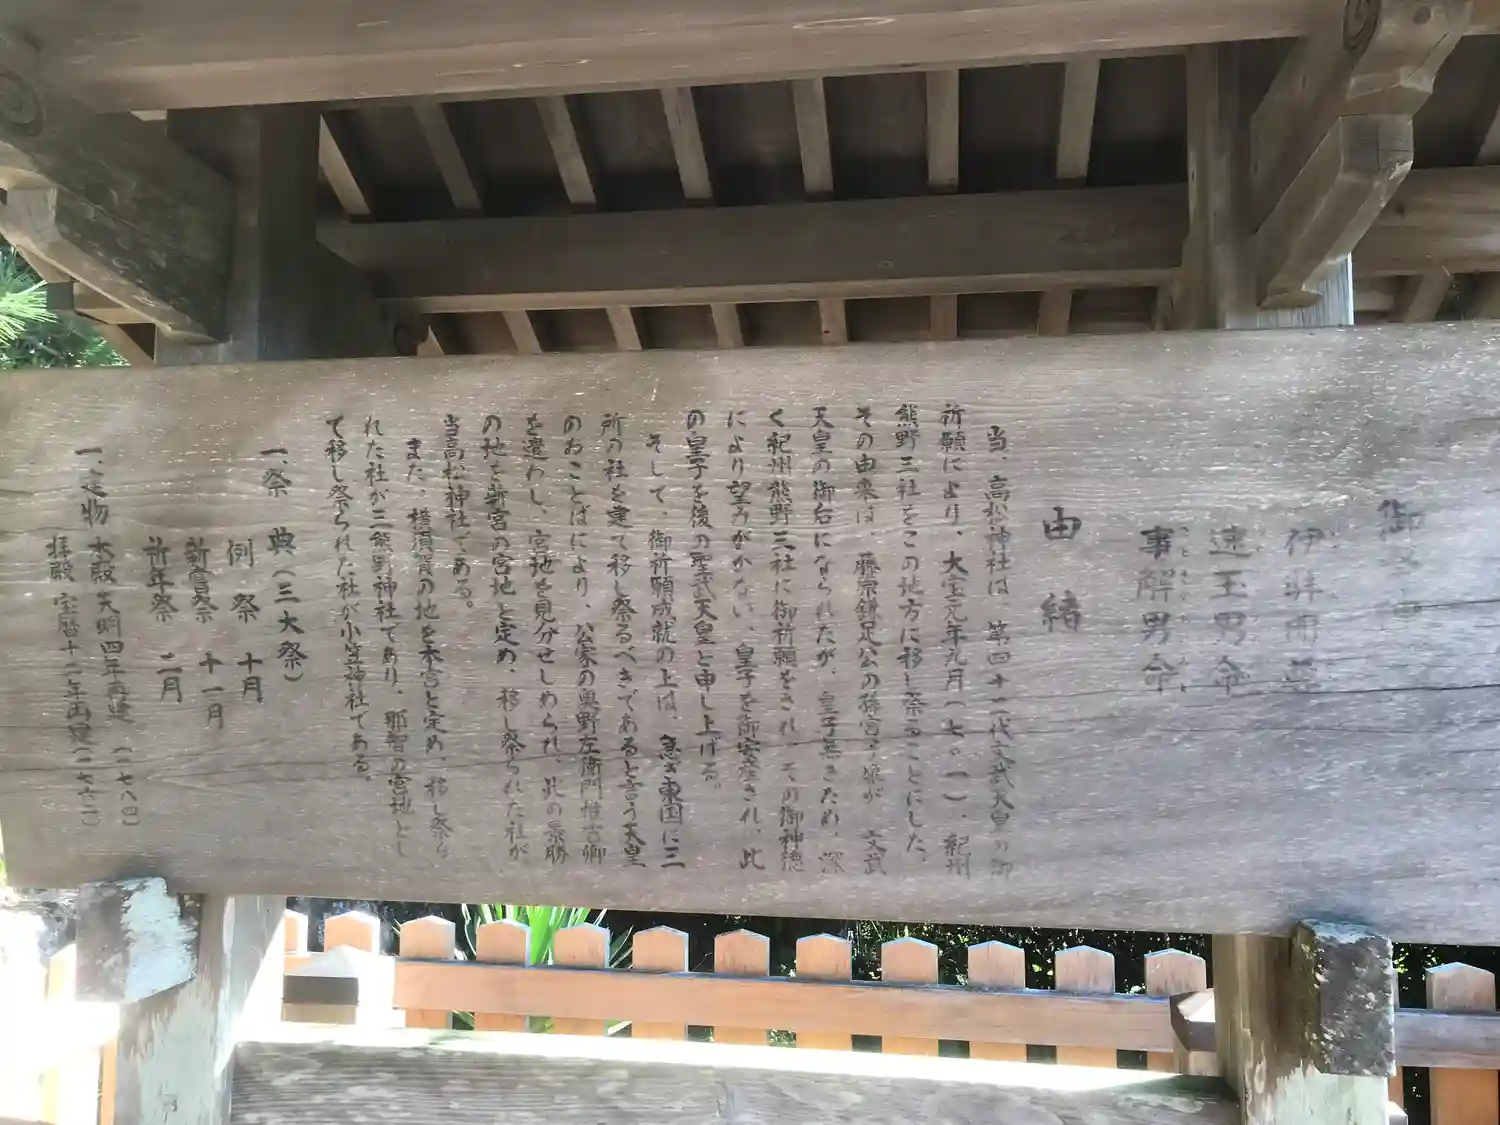 御
伊弉冊
速玉男命
事解男命
由緒
当、高松神社は、第四十二代文武天皇の御
祈願により、大宝元年九月(七〇一)、紀州
熊野三社をこの地方に移し祭ることにした。
その由来は、藤原鎌足公の孫宮子姫が、文武
天皇の御后になられたが、皇子無きため、深
く紀州熊野三社に御祈願をされ、その御神徳
により望みがかない、皇子を御安産され、此
の皇子を後の聖武天皇と申し上げる。
そして、御祈願成就の上は、急ぎ東国に三
所の社を建て移し祭るべきであると言う天皇
のおことばにより、公家の奥野左衛門惟吉卿
を遣わし、宮地を見分せしめられ、此の景勝
の地を新宮の宮地と定め、移し祭られた社が
当高松神社である。
また、横須賀の地を本宮と定め、移し祭ら
れた社が三熊野神社であり、那智の宮地とし
て移し祭られた社が小笠神社である。
一、祭典(三大祭)
例祭 十月
新嘗祭 十一月
祈年祭 二月
一、建物 本殿 天明四年再建 (一七八四)
拝殿 宝暦十二年再建(一七六二)